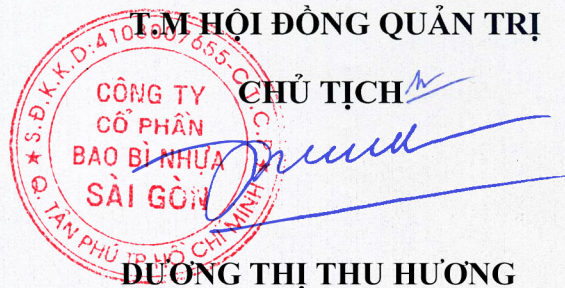 T.M HỘI ĐỒNG QUẢN TRỊ
CHỦ TỊCH
S.Đ.K.K.D:4103007655-C.T.C.P
CÔNG TY
CỔ PHẦN
BAO BÌ NHỰA
SÀI GÒN
Q. TÂN PHÚ TP. HỒ CHÍ MINH
DƯƠNG THỊ THU HƯƠNG